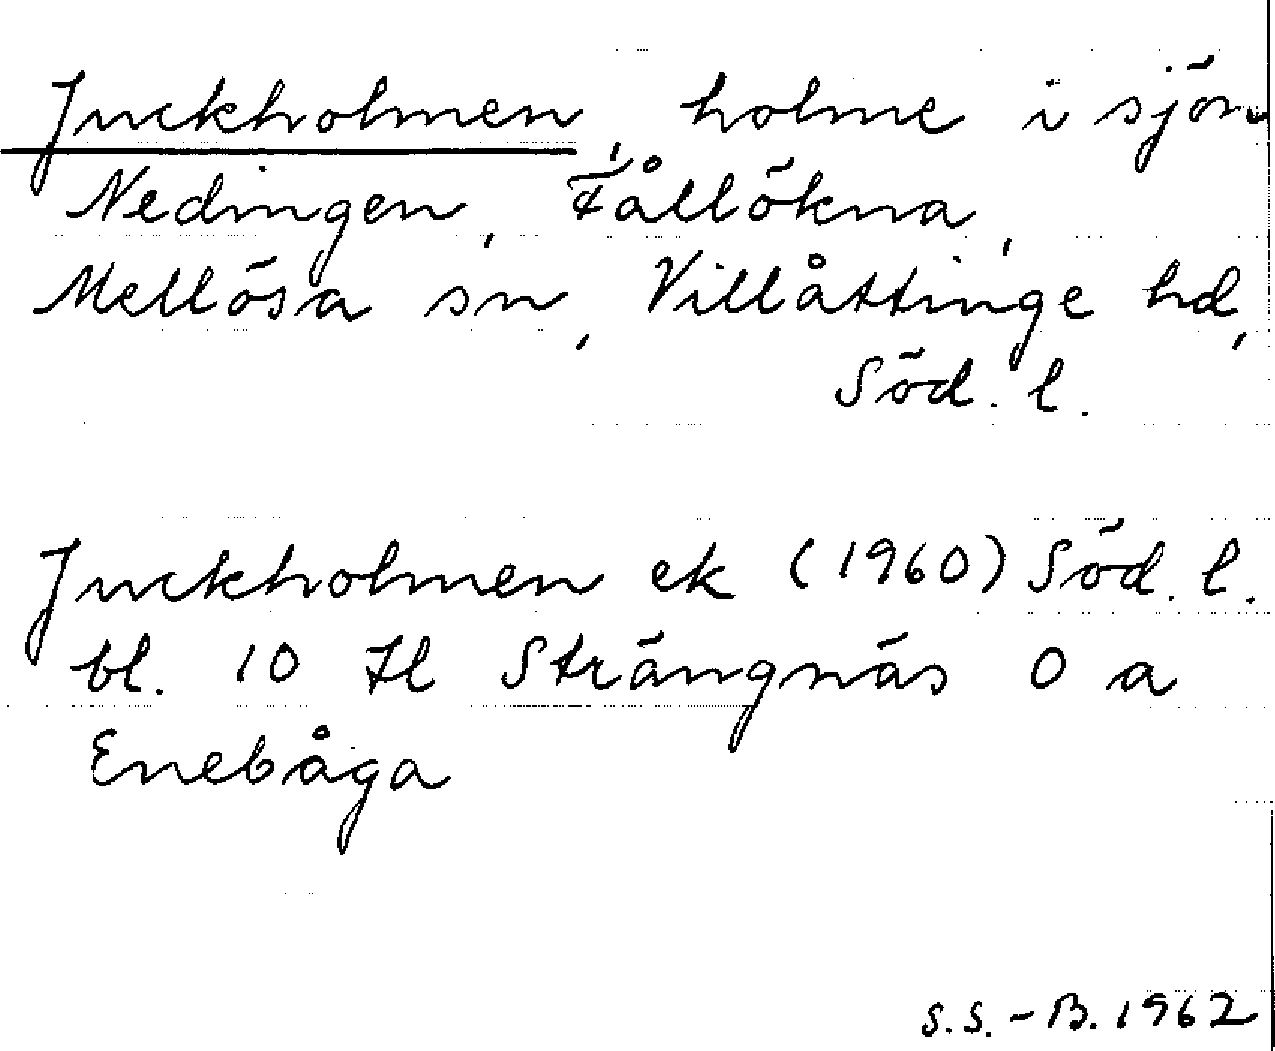 Juckholmen, holme i sjön
Nedingen, Fållökna,
Mellösa sn, Villåttinge hd,
Söd. l.
Juckholmen ek (1960) Söd. l.
bl. 10 Il Strängnäs 0 a
Enebåga
S.S.-B. 1962